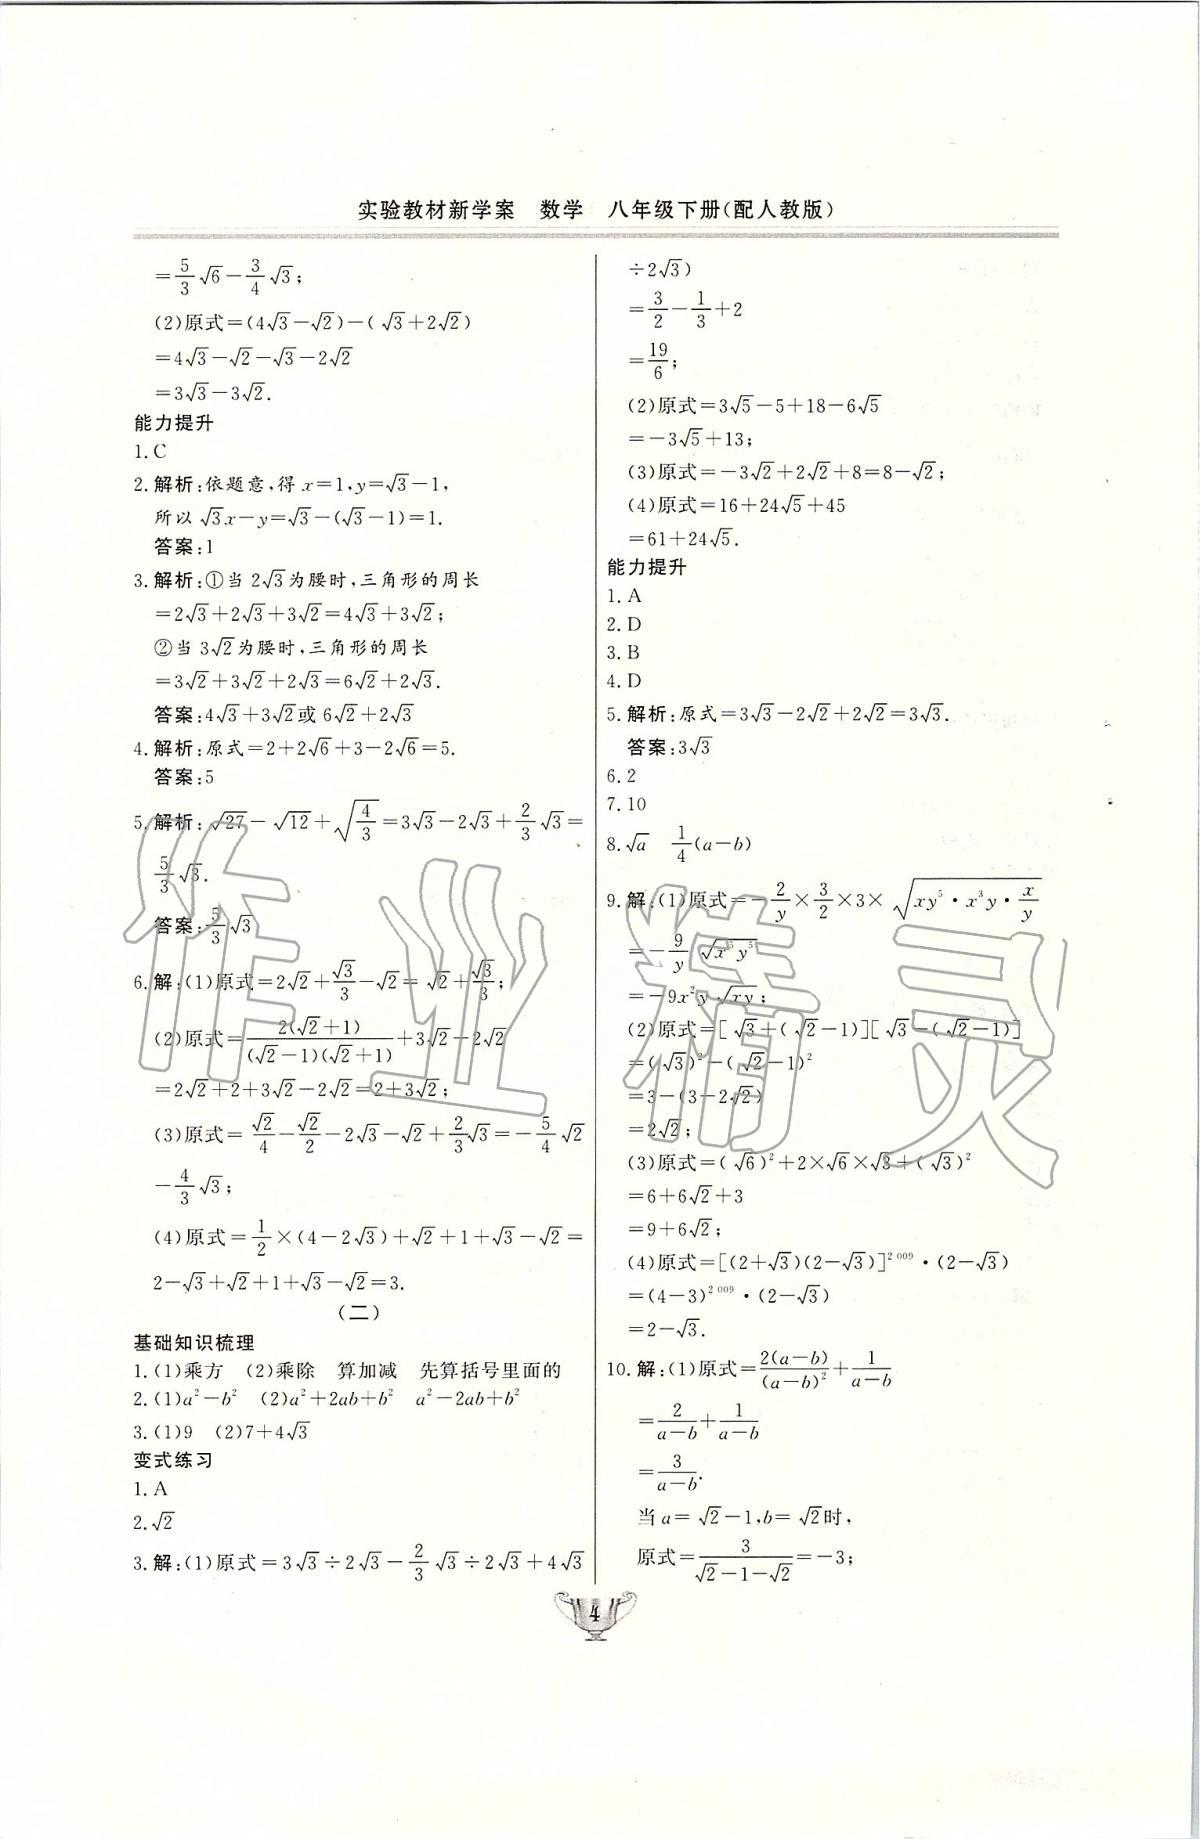 实验教材新学案 数学 八年级下册(配人教版)
=5/3√6-3/4√3;
(2)原式=(4√3-√2)-(√3+2√2)
=4√3-√2-√3-2√2
=3√3-3√2.
能力提升
1.C
2.解析:依题意,得x=1,y=√3-1,
所以√3x-y=√3-(√3-1)=1.
答案:1
3.解析:①当2√3为腰时,三角形的周长
=2√3+2√3+3√2=4√3+3√2;
②当3√2为腰时,三角形的周长
=3√2+3√2+2√3=6√2+2√3.
答案:4√3+3√2或6√2+2√3
4.解析:原式=2+2√6+3-2√6=5.
答案:5
5.解析:√27-√12+√(4/3)=3√3-2√3+2/3√3=
5/3√3.
答案:5/3√3
6.解:(1)原式=2√2+√3/3-√2=√2+√3/3;
(2)原式=2(√2+1)/((√2-1)(√2+1))+3√2-2√2
=2√2+2+3√2-2√2=2+3√2;
(3)原式=√2/4-√2/2-2√3-√2+2/3√3=-5/4√2
-4/3√3;
(4)原式=1/2×(4-2√3)+√2+1+√3-√2=
2-√3+√2+1+√3-√2=3.
(二)
基础知识梳理
1.(1)乘方 (2)乘除 算加减 先算括号里面的
2.(1)a²-b² (2)a²+2ab+b² a²-2ab+b²
3.(1)9 (2)7+4√3
变式练习
1.A
2.√2
3.解:(1)原式=3√3÷2√3-2/3√3÷2√3+4√3
÷2√3)
=3/2-1/3+2
=19/6;
(2)原式=3√5-5+18-6√5
=-3√5+13;
(3)原式=-3√2+2√2+8=8-√2;
(4)原式=16+24√5+45
=61+24√5.
能力提升
1.A
2.D
3.B
4.D
5.解析:原式=3√3-2√2+2√2=3√3.
答案:3√3
6.2
7.10
8.√a 1/4(a-b)
9.解:(1)原式=-2/y×3/2×3×√(xy⁵·x³y·x/y)
=-9/y√(x⁵y⁵)
=-9x²y√(xy);
(2)原式=[√3+(√2-1)][√3-(√2-1)]
=(√3)²-(√2-1)²
=3-(3-2√2)
=2√2;
(3)原式=(√6)²+2×√6×√3+(√3)²
=6+6√2+3
=9+6√2;
(4)原式=[(2+√3)(2-√3)]²⁰⁰⁹·(2-√3)
=(4-3)²⁰⁰⁹·(2-√3)
=2-√3.
10.解:(1)原式=2(a-b)/(a-b)²+1/(a-b)
=2/(a-b)+1/(a-b)
=3/(a-b).
当a=√2-1,b=√2时,
原式=3/(√2-1-√2)=-3;
4
作业精灵